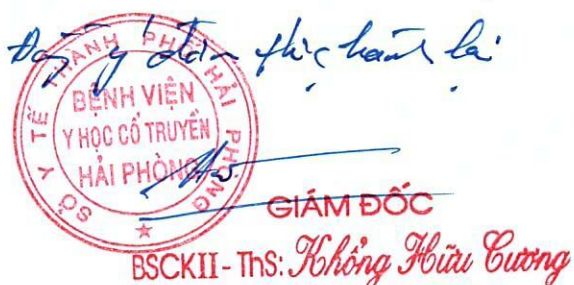 Đồng ý
SỞ Y TẾ THÀNH PHỐ HẢI PHÒNG
BỆNH VIỆN
Y HỌC CỔ TRUYỀN
HẢI PHÒNG
GIÁM ĐỐC
BSCKII - ThS: Khổng Hữu Cường